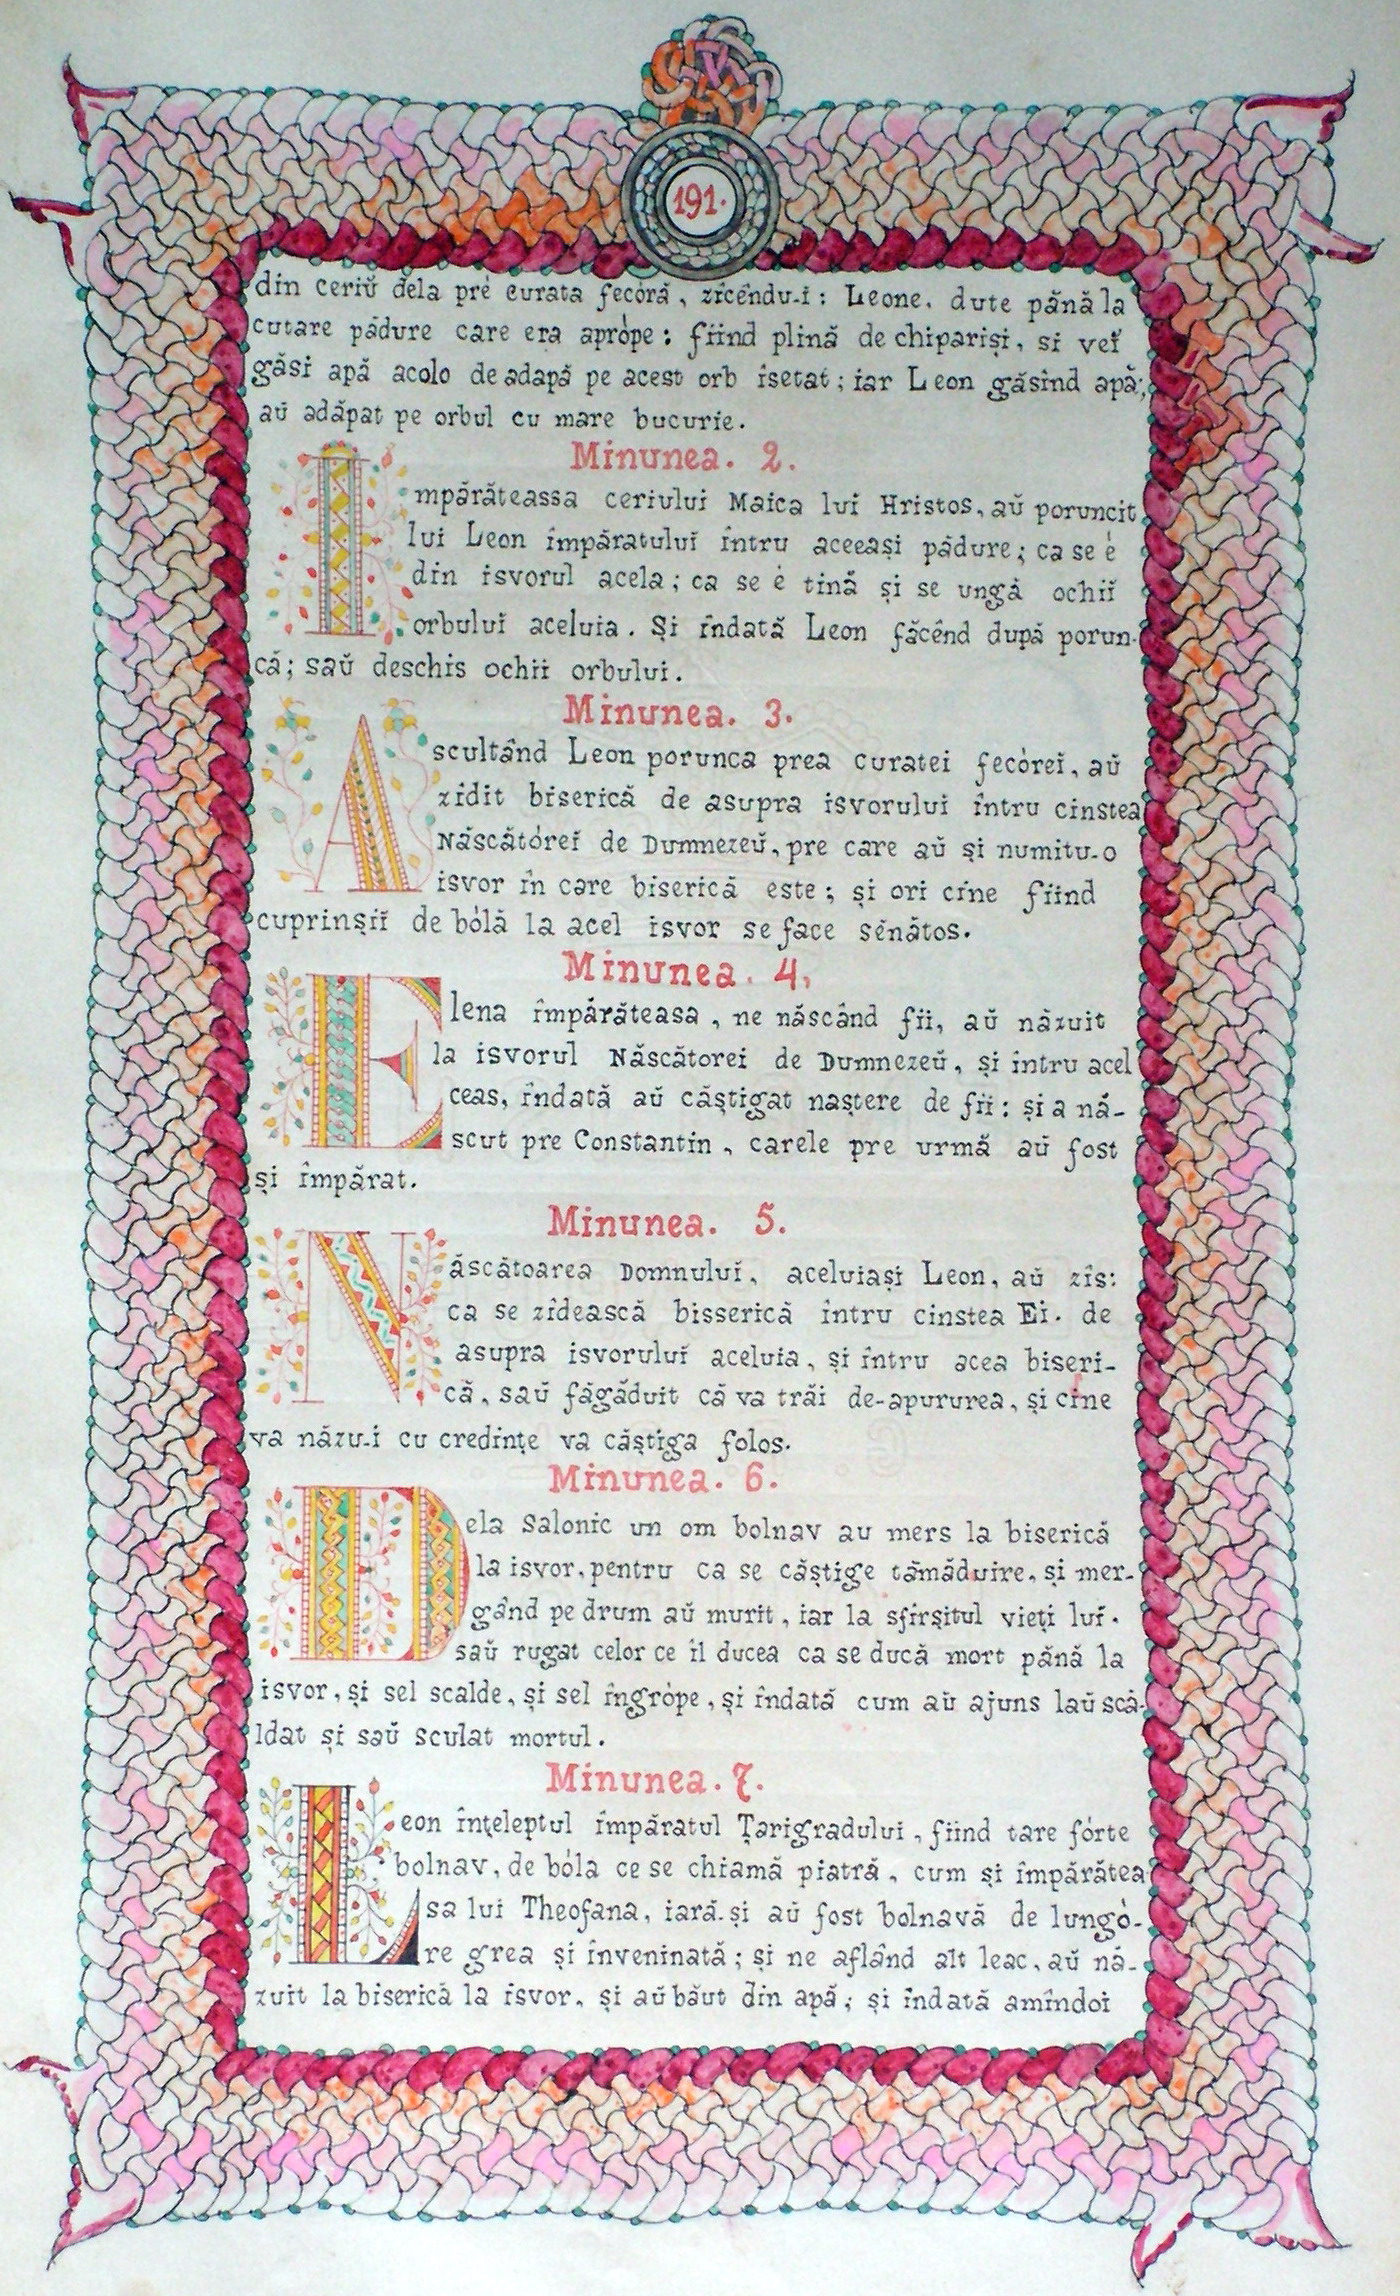 191.
din ceriŭ dela pré curata fecóră, zicêndu-i: Leone, dute până la
cutare pădure care era aprópe: fiind plină de chiparișĭ, si veĭ
găsi apă acolo de adapă pe acest orb îsetat; iar Leon găsind apă;
aŭ adăpat pe orbul cu mare bucurie.
Minunea. 2.
Impărăteassa ceriului Maica lui Hristos, aŭ poruncit
lui Leon împăratuluĭ întru aceeași pădure; ca se é
din isvorul acela; ca se é tină și se ungă ochiĭ
orbuluĭ aceluia. Și îndată Leon făcênd după porun-
că; saŭ deschis ochii orbului.
Minunea. 3.
Ascultând Leon porunca prea curatei fecóreĭ, aŭ
zidit biserică de asupra isvorului întru cinstea
Născătóreĭ de Dumnezeŭ, pre care aŭ și numitu-o
isvor în care biserică este; și ori cine fiind
cuprinșiĭ de bólă la acel isvor se face sénătos.
Minunea. 4.
Elena împărăteasa, ne născând fii, aŭ năzuit
la isvorul Născătorei de Dumnezeŭ, și întru acel
ceas, îndată aŭ câștigat naștere de fii: și a nă-
scut pre Constantin, carele pre urmă aŭ fost
și împărat.
Minunea. 5.
Născătoarea Domnului, aceluiași Leon, aŭ zis:
ca se zidească bisserică întru cinstea Ei. de
asupra isvoruluĭ aceluia, și întru acea biseri-
că, saŭ făgăduit că va trăi de-apururea, și cine
va năzu-i cu credințe va câștiga folos.
Minunea. 6.
Dela Salonic un om bolnav au mers la biserică
la isvor, pentru ca se câștige tămăduire, și mer-
gând pe drum aŭ murit, iar la sfirșitul vieți luĭ.
saŭ rugat celor ce îl ducea ca se ducă mort până la
isvor, și sel scalde, și sel îngrópe, și îndată cum aŭ ajuns laŭ scă-
ldat și saŭ sculat mortul.
Minunea. 7.
Leon înțeleptul împăratul Țarigradului, fiind tare fórte
bolnav, de bóla ce se chiamă piatră, cum și împărătea
sa lui Theofana, iară-și aŭ fost bolnavă de lungó-
re grea și înveninată; și ne aflând alt leac, aŭ nă-
zuit la biserică la isvor, și aŭ băut din apă; și îndată amîndoi